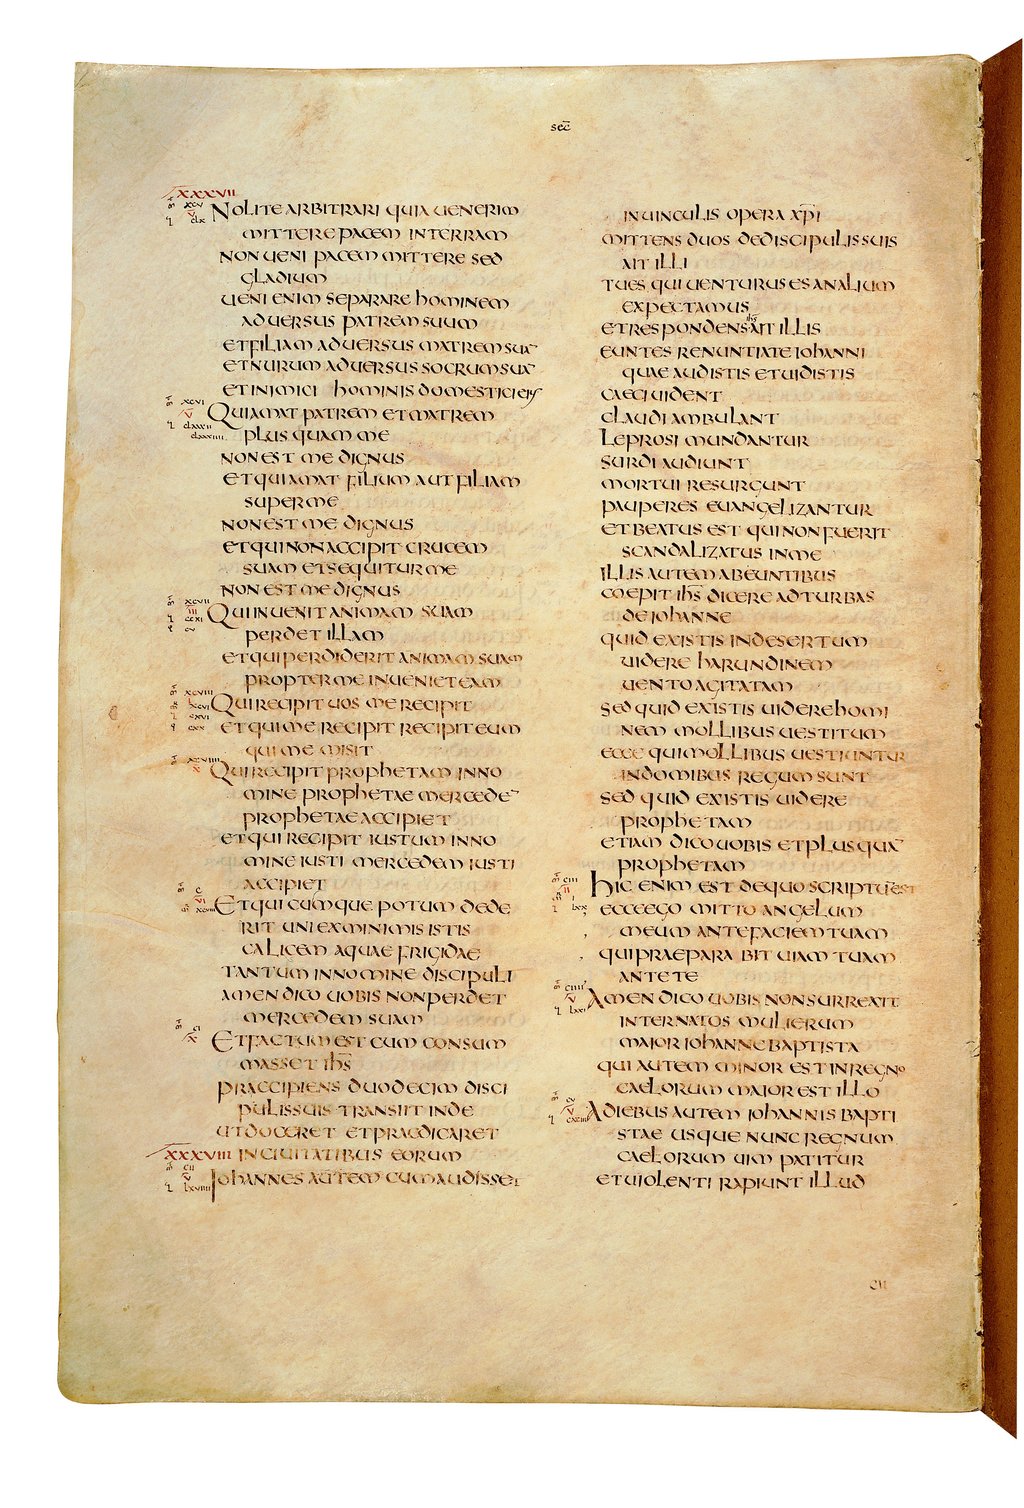 sec̄
XXXVII
NOLITE ARBITRARI QUIA UENERIM
MITTERE PACEM IN TERRAM
NON UENI PACEM MITTERE SED
GLADIUM
UENI ENIM SEPARARE HOMINEM
ADUERSUS PATREM SUUM
ET FILIAM ADUERSUS MATREM SUA¯
ET NURUM ADUERSUS SOCRUM SUA¯
ET INIMICI HOMINIS DOMESTICI EIUS
m̄ XCVI
V
QUI AMAT PATREM ET MATREM
PLUS QUAM ME
NON EST ME DIGNUS
ET QUI AMAT FILIUM AUT FILIAM
SUPER ME
NON EST ME DIGNUS
ET QUI NON ACCIPIT CRUCEM
SUAM ET SEQUITUR ME
NON EST ME DIGNUS
m̄ XCVII
III
CCXI
QUI INUENIT ANIMAM SUAM
PERDET ILLAM
ET QUI PERDIDERIT ANIMAM SUAM
PROPTER ME INUENIET EAM
m̄ XCVIII
QUI RECIPIT UOS ME RECIPIT
ET QUI ME RECIPIT RECIPIT EUM
QUI ME MISIT
m̄ XCVIIII
X
QUI RECIPIT PROPHETAM IN NO
MINE PROPHETAE MERCEDE¯
PROPHETAE ACCIPIET
ET QUI RECIPIT IUSTUM IN NO
MINE IUSTI MERCEDEM IUSTI
ACCIPIET
m̄ C
VI
ET QUICUMQUE POTUM DEDE
RIT UNI EX MINIMIS ISTIS
CALICEM AQUAE FRIGIDAE
TANTUM IN NOMINE DISCIPULI
AMEN DICO UOBIS NON PERDET
MERCEDEM SUAM
m̄ CI
X
ET FACTUM EST CUM CONSUM
MASSET IH̄S
PRAECIPIENS DUODECIM DISCI
PULIS SUIS TRANSIIT INDE
UT DOCERET ET PRAEDICARET
XXXVIII IN CIUITATIBUS EORUM
m̄ CII
V
IOHANNES AUTEM CUM AUDISSET
IN UINCULIS OPERA XP̄I
MITTENS DUOS DE DISCIPULIS SUIS
AIT ILLI
TU ES QUI UENTURUS ES AN ALIUM
EXPECTAMUS
ET RESPONDENS IH̄S AIT ILLIS
EUNTES RENUNTIATE IOHANNI
QUAE AUDISTIS ET UIDISTIS
CAECI UIDENT
CLAUDI AMBULANT
LEPROSI MUNDANTUR
SURDI AUDIUNT
MORTUI RESURGUNT
PAUPERES EUANGELIZANTUR
ET BEATUS EST QUI NON FUERIT
SCANDALIZATUS IN ME
ILLIS AUTEM ABEUNTIBUS
COEPIT IH̄S DICERE AD TURBAS
DE IOHANNE
QUID EXISTIS IN DESERTUM
UIDERE HARUNDINEM
UENTO AGITATAM
SED QUID EXISTIS UIDERE HOMI
NEM MOLLIBUS UESTITUM
ECCE QUI MOLLIBUS UESTIUNTUR
IN DOMIBUS REGUM SUNT
SED QUID EXISTIS UIDERE
PROPHETAM
ETIAM DICO UOBIS ET PLUS QUA¯
PROPHETAM
m̄ CIII
II
HIC ENIM EST DE QUO SCRIPTŪ EST
ECCE EGO MITTO ANGELUM
MEUM ANTE FACIEM TUAM
QUI PRAEPARABIT UIAM TUAM
ANTE TE
m̄ CIIII
V
AMEN DICO UOBIS NON SURREXIT
INTER NATOS MULIERUM
MAIOR IOHANNE BAPTISTA
QUI AUTEM MINOR EST IN REGNO
CAELORUM MAIOR EST ILLO
m̄ CV
V
A DIEBUS AUTEM IOHANNIS BAPTI
STAE USQUE NUNC REGNUM
CAELORUM UIM PATITUR
ET UIOLENTI RAPIUNT ILLUD